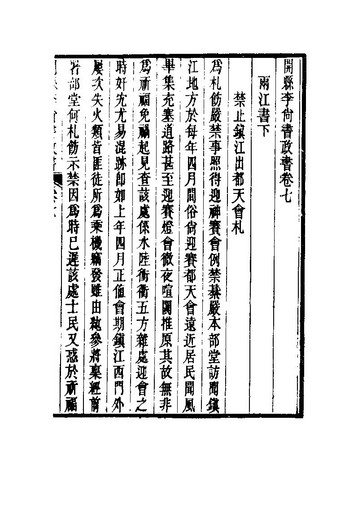 開縣李尚書政書卷七
兩江書下
禁止鎭江出都天會札
爲札飭嚴禁事照得迎神賽會例禁綦嚴本部堂訪聞鎭
江地方於每年四月間俗尚迎賽都天會遠近居民聞風
畢集充塞道路甚至迎賽燈會徹夜喧闐推原其故無非
爲祈福免禍起見查該處係水陸衝衢五方雜處迎會之
時奸宄尤易混跡即如上年四月正值會期鎭江西門外
屢次失火類皆匪徒所爲乘機竊發雖由
參將稟經前
署部堂何札飭示禁因爲時已遲該處士民又惑於祈福